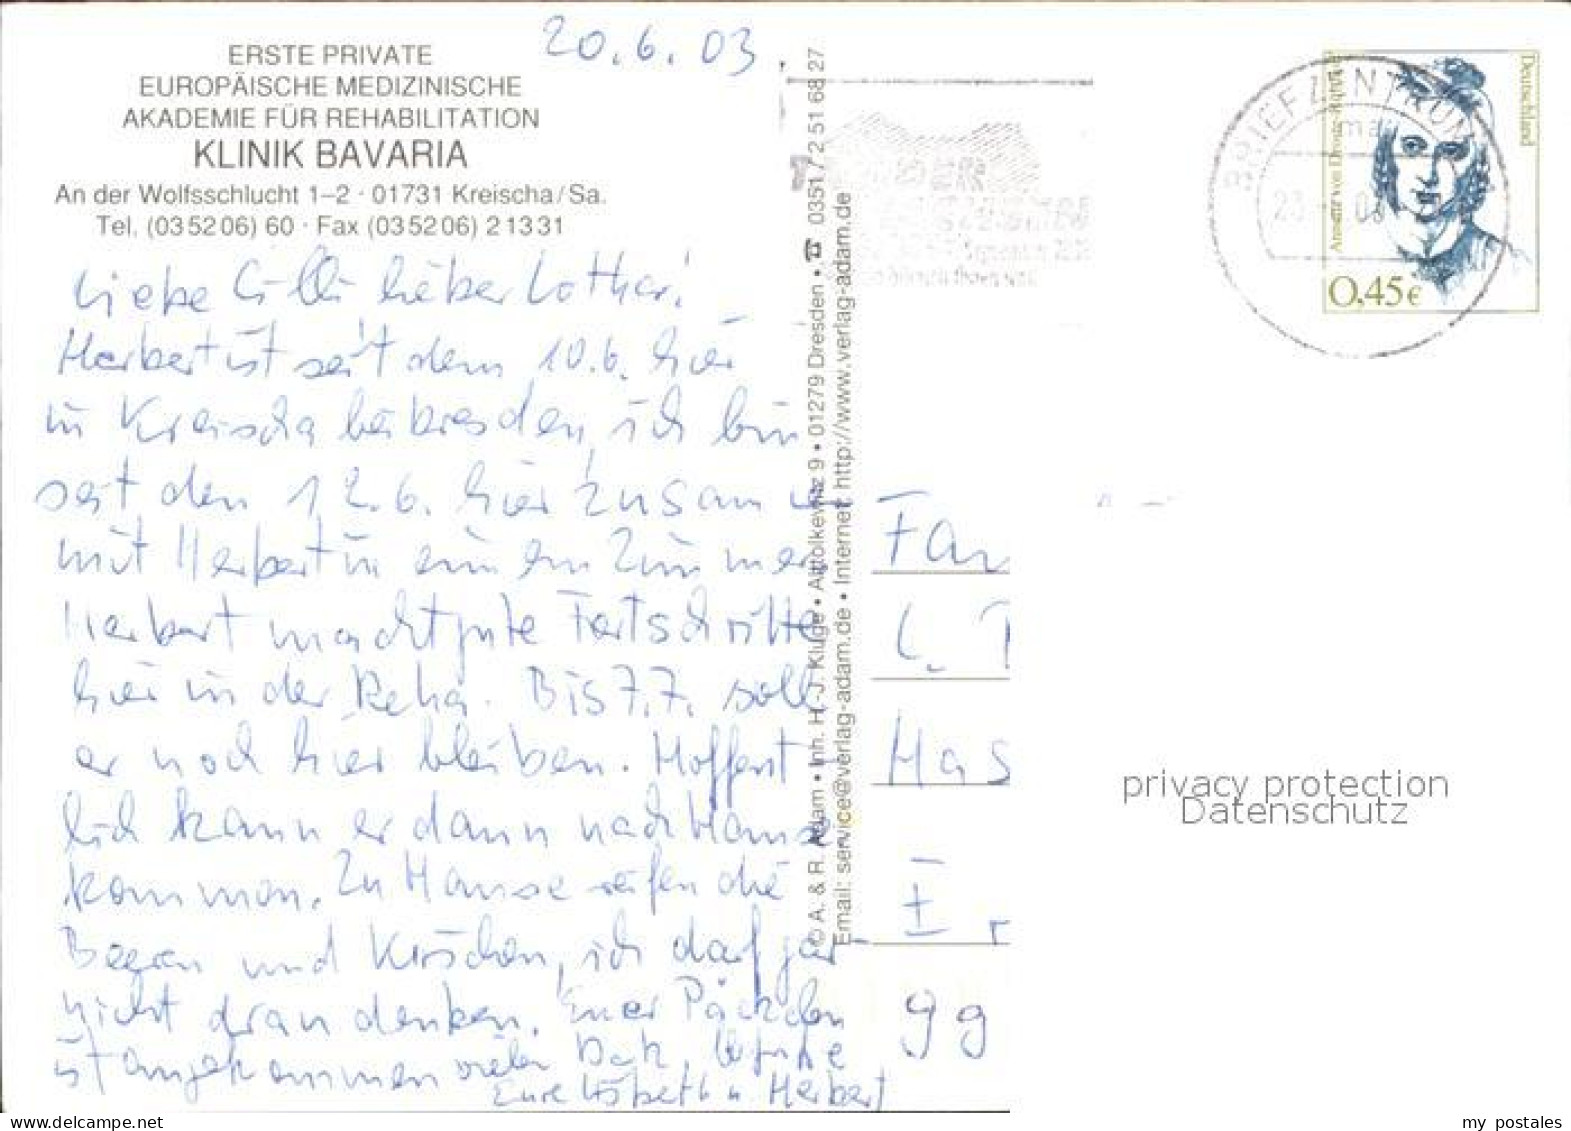 20.6.03
ERSTE PRIVATE
EUROPÄISCHE MEDIZINISCHE
AKADEMIE FÜR REHABILITATION
KLINIK BAVARIA
An der Wolfsschlucht 1–2 · 01731 Kreischa/Sa.
Tel. (035206) 60 · Fax (035206) 21331
Liebe Cilli lieber Lothar!
Herbert ist seit dem 10.6. hier
in Kreischa bei Dresden, ich bin
seit den 12.6. hier zusam
mit Herbert in einem Zimmer
Herbert macht gute Fortschritte
hier in der Reha. Bis 7.7. soll
er noch hier bleiben. Hoffent
lich kann er dann nach Hause
kommen. Zu Hause reifen die
Beeren und Kirschen, ich darf gar
nicht dran denken. Euer Päckchen
ist angekommen vielen Dank,
Eure Lisbeth u Herbert
© A. & R. Adam • Inh. H.-J. Kluge • Altolkewitz 9 • 01279 Dresden • ☎ 0351 / 2 51 68 27
Email: service@verlag-adam.de • Internet: http://www.verlag-adam.de
BRIEFZENTRUM
23
Deutschland
Annette von Droste-Hülshoff
0,45€
Fam
L.
Has
E
99
privacy protection
Datenschutz
my_postales